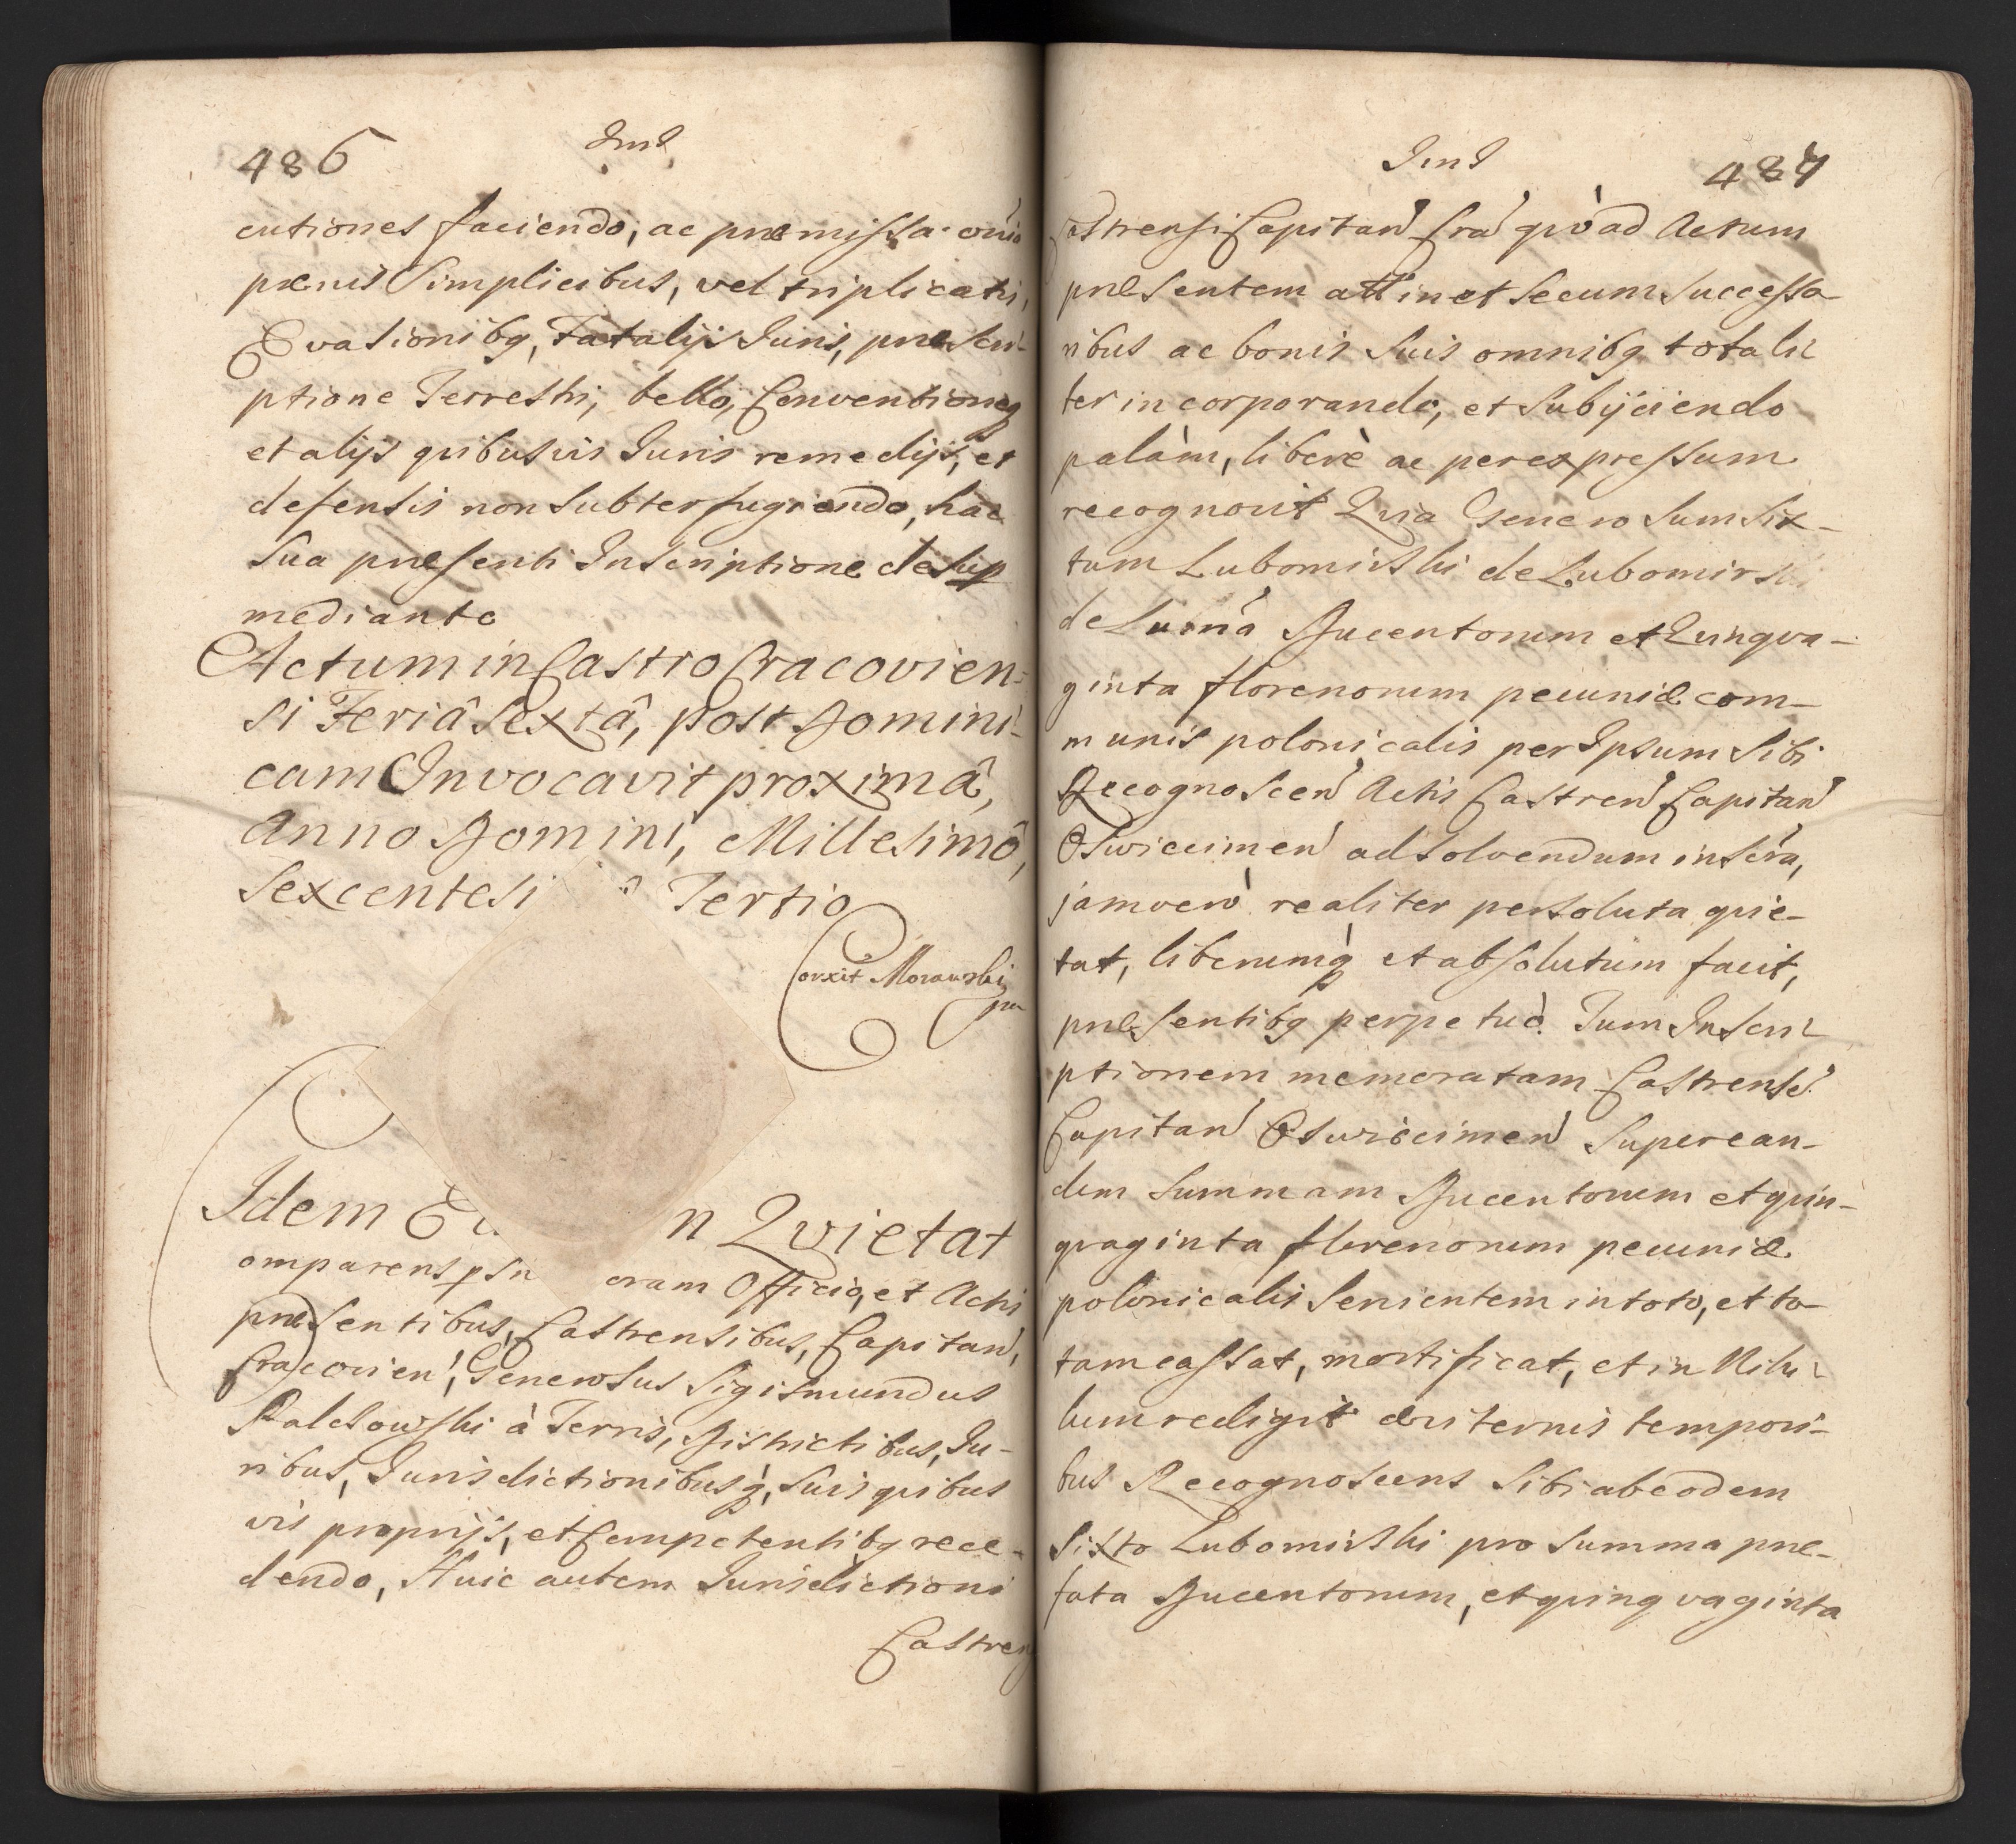 486
cutiones faciendo, ac præmissa omã
pænis Simplicibus, vel triplicatis,
Evasionibq, Fatalijs Juris, præscri-
ptione Terrestri, bello, Conventioneq
et alijs quibusvis Juris remedijs, et
defensis non Subterfugiendo, hac
Sua præsenti Inscriptione desup
mediante
Actum in Castro Cracovien=
si Feriâ Sextâ, post Domini-
cam Invocavit proximâ,
Anno Domini, Millesimô,
Sexcentesi Tertio
Corxit Morawski
Idem n Qvietat
omparens psn oram Officio, et Actis
præsentibus, Castrensibus, Capitan̄,
Cracovien̄, Generosus Sigismundus
Palczowski à Terris, Districtibus, Ju-
ribus, Jurisdictionibusq̀, Suis quibus
vis proprijs, et Competentibq rece-
dendo, Huic autem Jurisdictioni
Castren
487
Castrensi Capitan̄ Cra quò ad Actum
præsentem attinet Secum Successo-
ribus ac bonis Suis omnibq totali-
ter incorporando, et Subijciendo
palàm, liberè ac per expressum
recognovit Quia Generosum Six-
tum Lubomirski de Lubomirz
de Sum̃a Ducentorum et Quinqva-
ginta florenorum pecuniæ com-
munis polonicalis per Ipsum Sibi
Recognoscen̄ Actis Castren̄ Capitan̄
Oswiecimen̄ ad solvendum inscra,
jamverò realiter persoluta qvie-
tat, liberumq̀ et absolutum facit,
præsentibq perpetuò. Tum Inscri-
ptionem memoratam Castrensē
Capitan̄ Oswiecimen̄ Super ean-
dem Summam Ducentorum et quin-
quaginta florenorum pecuniæ
polonicalis Servientem in toto, et to-
tam cassat, mortificat, et in Nihi-
lum redigit æviternis tempori-
bus Recognoscens Sibi ab eodem
Sixto Lubomirski pro Summa præ-
fata Ducentorum, et quinqvaginta